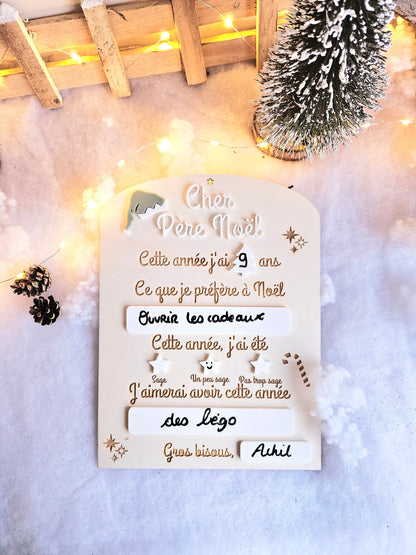 Cher
Père Noël
Cette année j'ai 9 ans
Ce que je préfère à Noël
Ouvrir les cadeaux
Cette année, j'ai été
Sage Un peu sage Pas trop sage
J'aimerai avoir cette année
des légo
Gros bisous, Achil